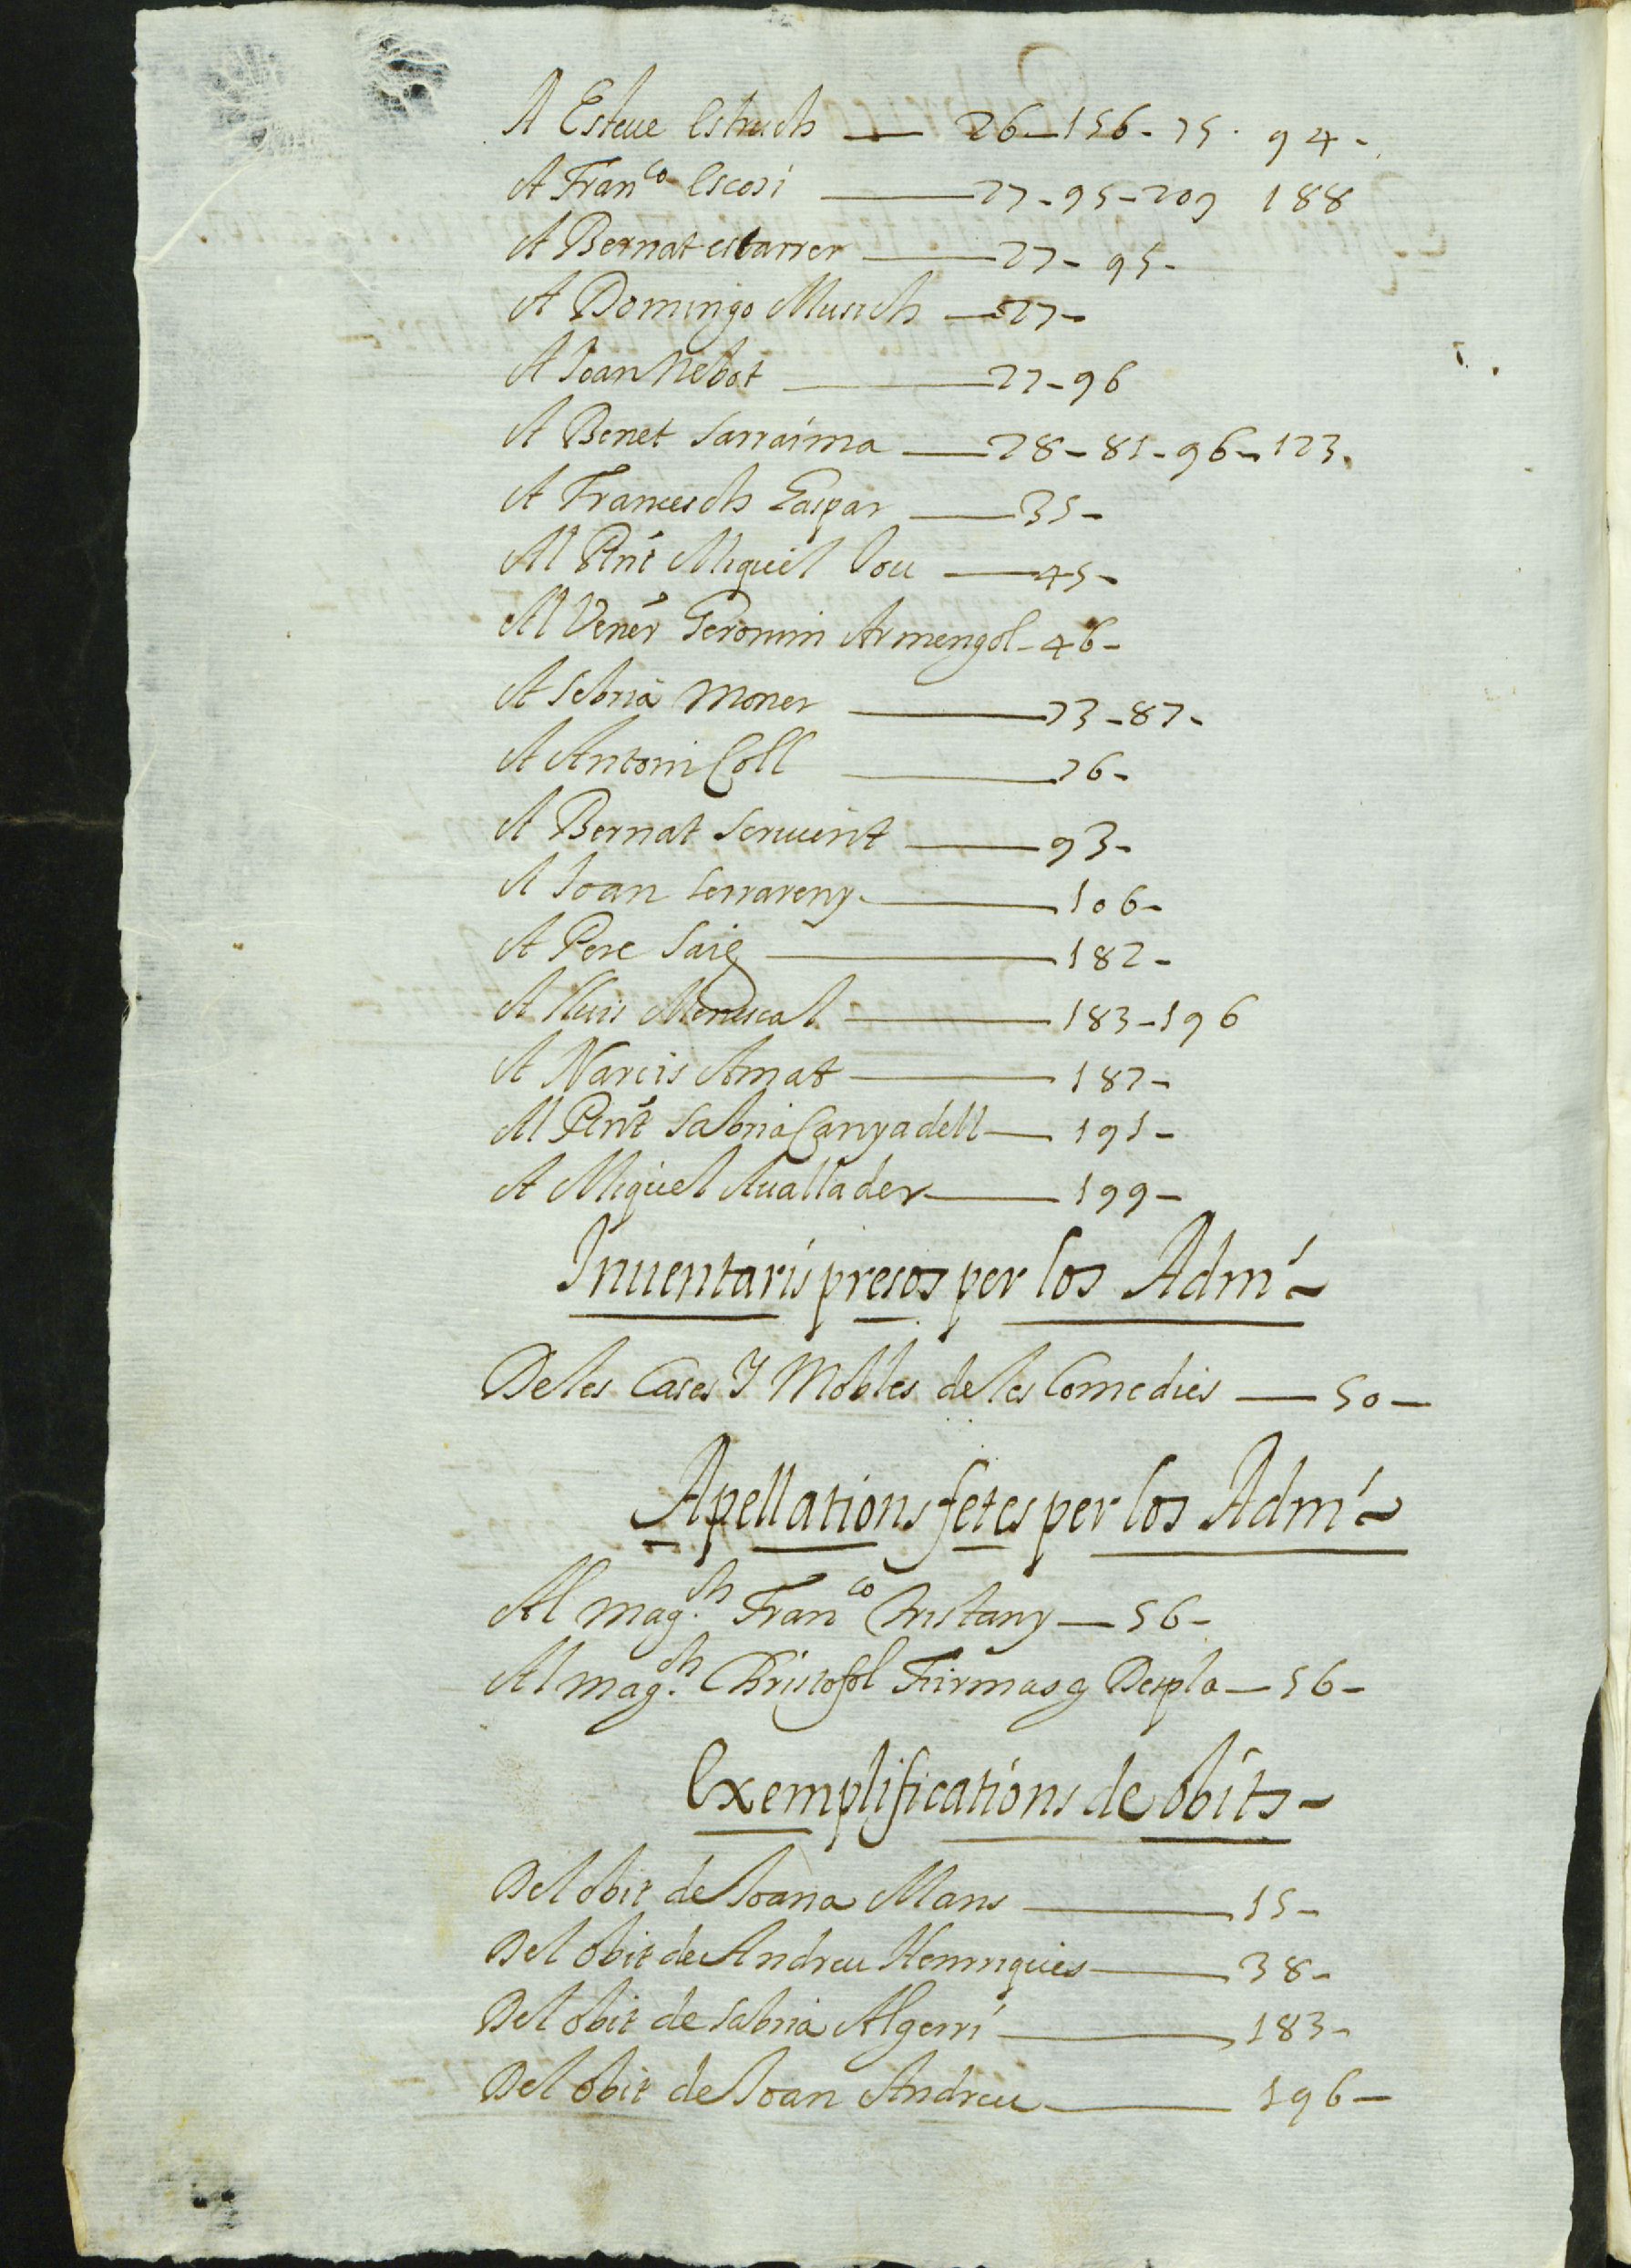 A Esteue Estruch — 26 — 156 - 75 · 94 -
A Fran.co Escosi — 27 - 95 - 209 188
A Bernat estarrer — 27 - 95 -
A Domingo Musich — 27 -
A Joan Nebot — 27 - 96
A Benet Sarraima — 28 - 81 - 96 - 123.
A Francesch Gaspar — 35 -
Al Rnt Miquel Jou — 45 -
Al Vener Geronim Armengol - 46 -
A Sebria Moner — 73 - 87 -
A Antoni Coll — 76 -
A Bernat Seruent — 93 -
A Joan Serrareny — 106 -
A Pere Saig — 182 -
A Lluis Menescal — 183 - 196
A Narcis Amat — 187 -
Al Rnt Sabria Canyadell — 191 -
A Miquel Auallader — 199 -
Inuentaris presos per los Adm~
De les Cases Y Mobles de les Comedies — 50 —
Apellations fetes per los Adm~
Al mag.ch Fran.co Cristany — 56 -
Al mag.ch Christofol Firmas y Despla — 56 -
Exemplifications de obits -
Del obit de Joana Mans — 15 -
Del obit de Andreu Henrriques — 38 -
Del obit de Sabria Algerri — 183 -
Del obit de Joan Andreu — 196 —